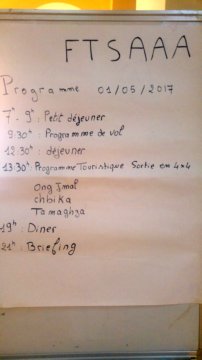 FTSAAA
Programme 01/05/2017
7h - 9h : Petit déjeuner
9.30h : Programme de vol
12.30h : déjeuner
13.30h : Programme Touristique Sortie en 4x4
Ong Jmal
chbika
Tamaghza
19h : Diner
21h : Briefing